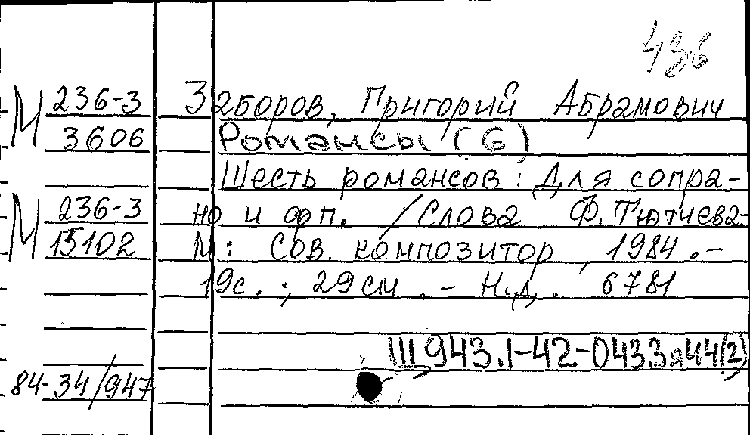 436
М 236-3 Заборов, Григорий Абрамович
3606 Романсы (6)
Шесть романсов : Для сопра-
М 236-3 но и фп. / Слова Ф. Тютчева
15102 М : Сов. композитор, 1984. -
19 с. ; 29 см. - Н.д. 6781
Ш943.1-42-0433я44(2)
84-34/947